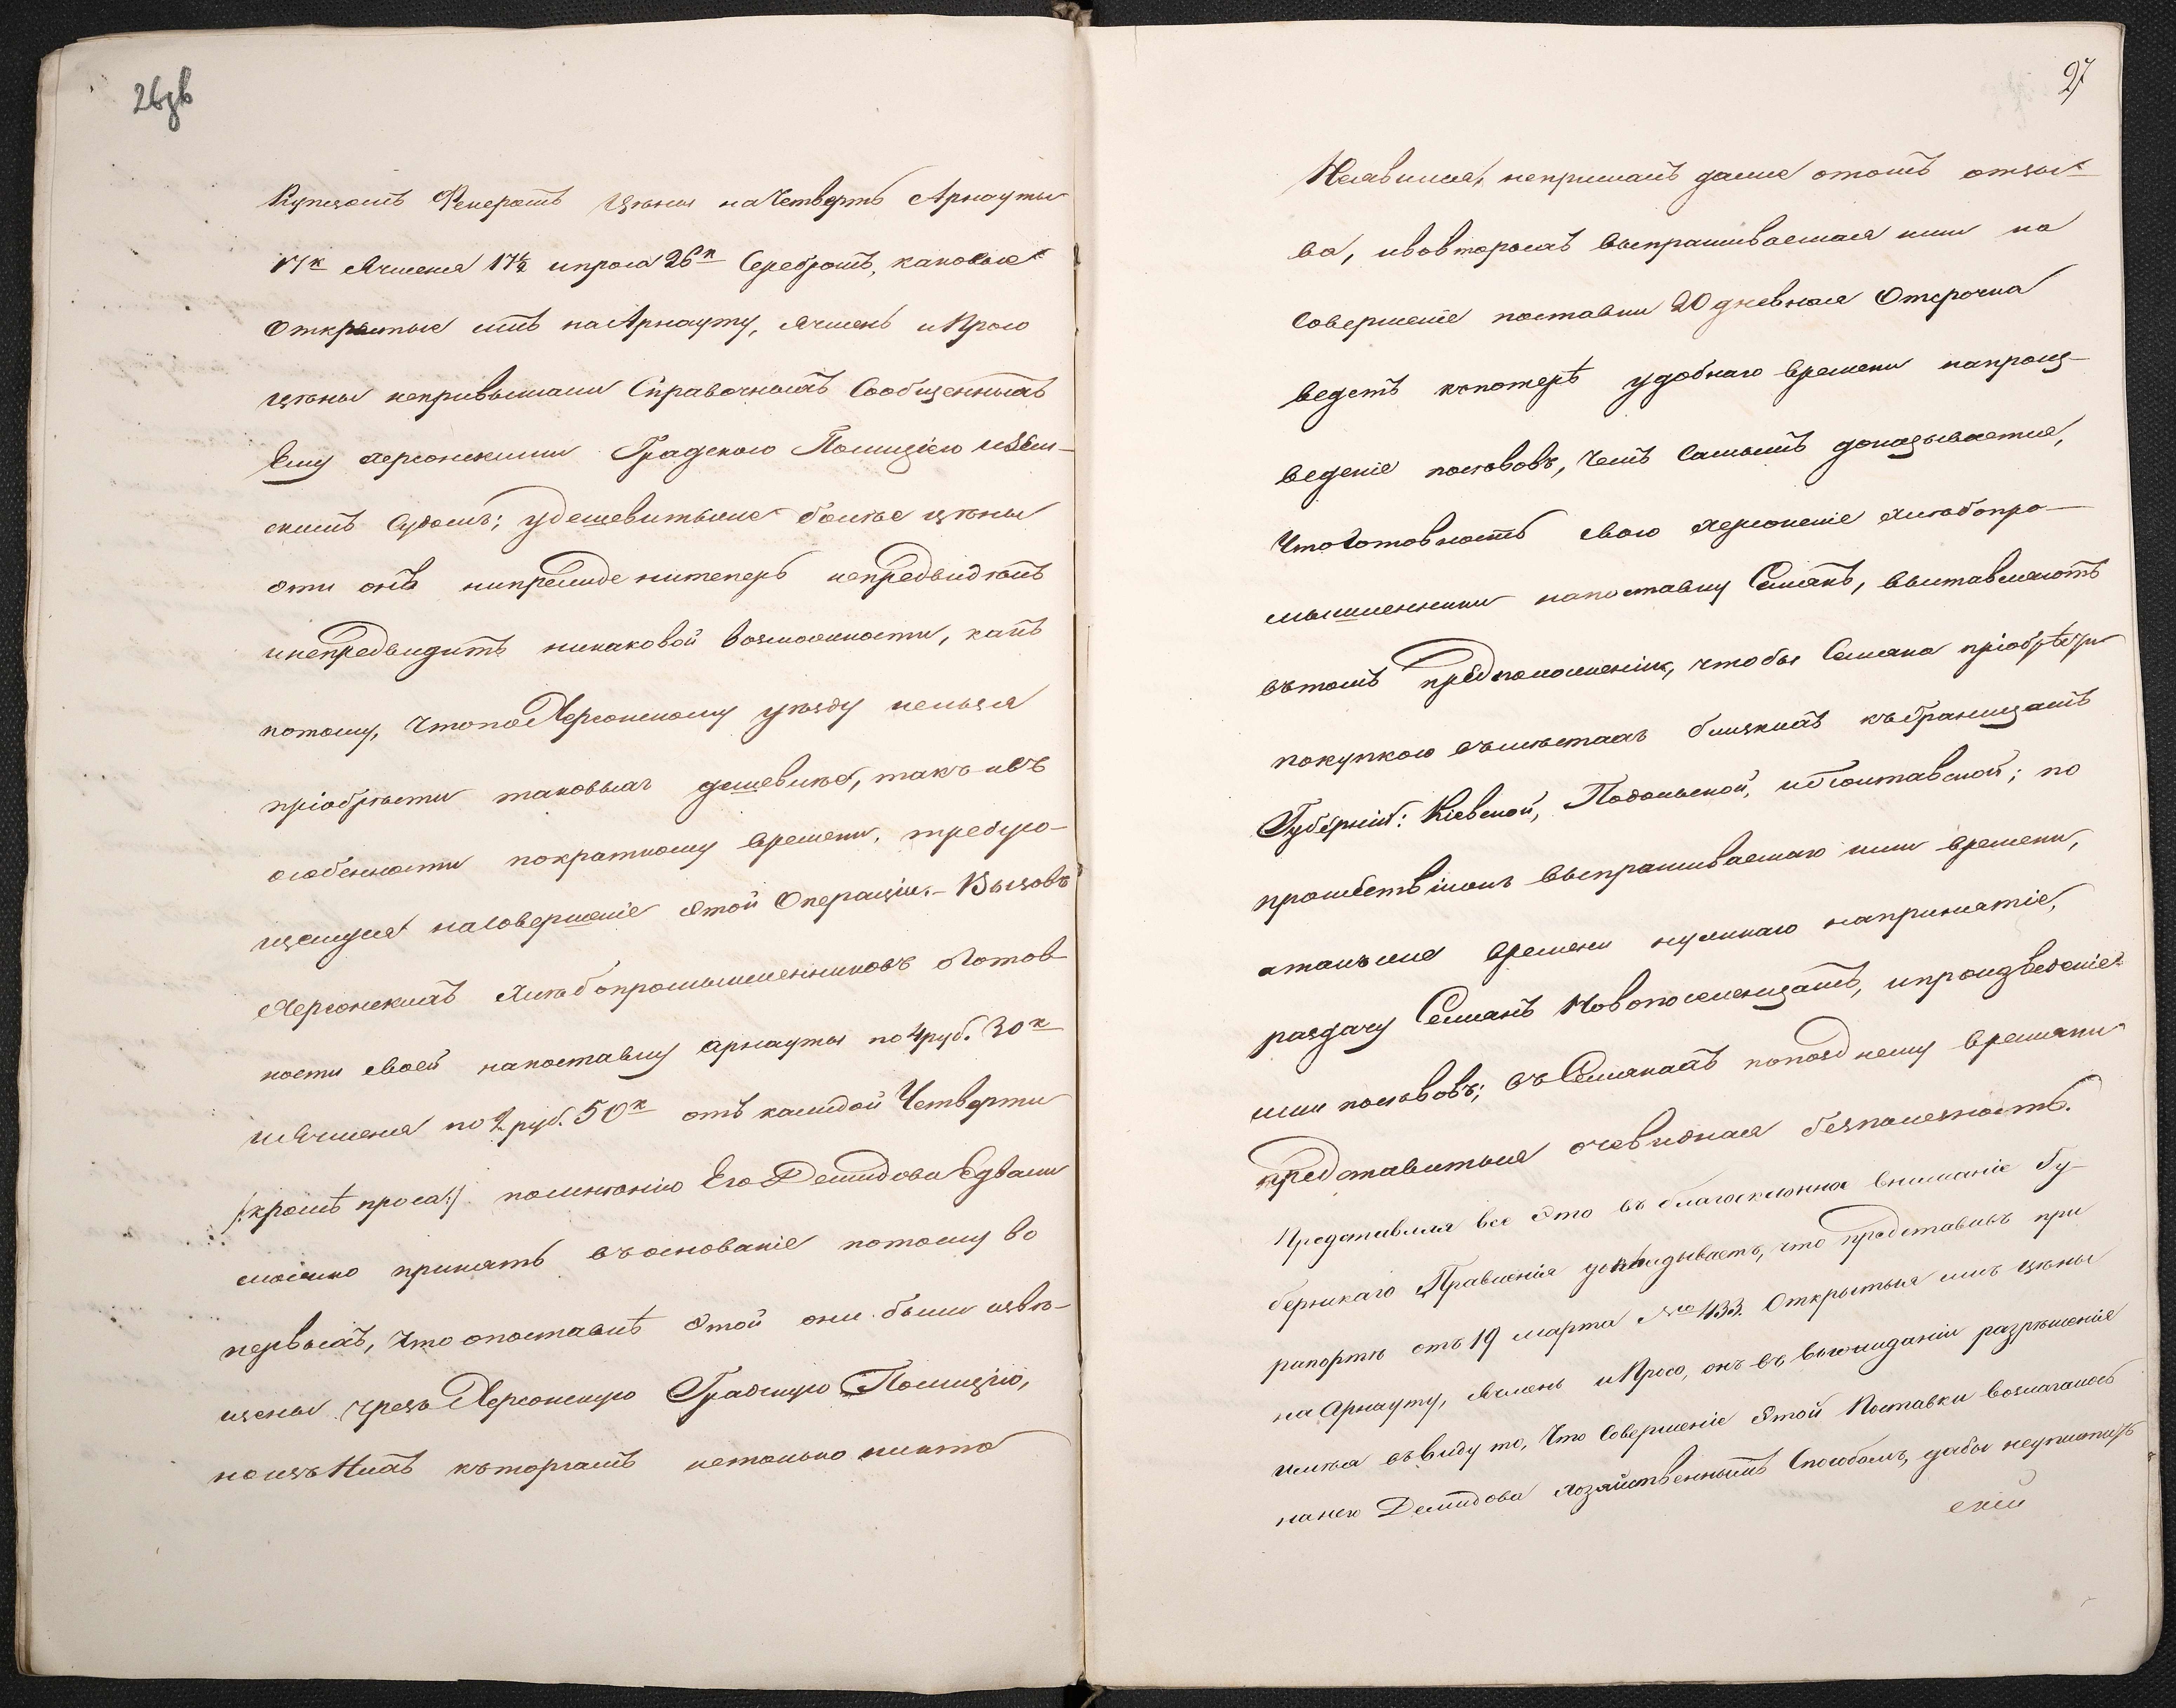 26зв
Купцомъ Фенеромъ цѣны на Четверть Арнауты
17к Ячменя 17½ и проса 26к Серебромъ, каковые
Открытые имъ на Арнауту, Ячмень и Просо
цѣны непривышали Справочныхъ Сообщенныхъ
Ему херсонскими Градскою Полициею и Зем-
скимъ Судомъ; удешевить же более цѣны
эти онъ ни прежде ни теперь непредвидѣлъ
и непредвидитъ никаковой возможности, какъ
потому, Что по Херсонскому уѣзду нельзя
пріобрѣсти таковыхъ дешевлѣ, такъ и въ
особенности по краткому времени, требую-
щемуся на Совершеніе Этой Операціи. – Вызовъ
Херсонскихъ Хлѣбопромышленниковъ о Готов-
ности своей на поставку арнауты по 4 руб. 30к
и Ячменя по 2 руб. 50к отъ каждой Четверти
/:кромѣ проса:/ по мнѣнію Его Демидова Едвали
можно принять въ основаніе потому во
первыхъ, Что о поставкѣ Этой они были извѣ-
щены чрезъ Херсонскую Градскую Полицію,
но изъ Нихъ къ торгамъ не только никто
27
Неявился, непринялъ даже этотъ отзы-
ва, и во вторыхъ выпрашиваемая ими на
Совершеніе поставки 20 дневная Отсрочка
ведетъ къ потерѣ удобнаго времени на произ-
веденіе посѣвовъ, Чемъ Самымъ доказывается,
Что Готовность свою херсонскіе хлѣбопро-
мышленники на поставку Семянъ, выставляютъ
въ томъ предположеніи, чтобы Семяна пріобрѣсти
покупкою въ мѣстахъ близкихъ къ границамъ
Губерній: Кіевской, Подольской, и Полтавской; по
прошествіи же выпрашиваемаго ими времени,
а также времени нужнаго на принятіе,
раздачу Семянъ Новопоселенцамъ, и произведеніе
ими посѣвовъ; въ Семянахъ по позднему времяни
представиться очевидная безполезность.
Представляя все Это въ благосклонное вниманіе Гу-
бернскаго Правленія докладываетъ, что представивъ при
рапортѣ отъ 19 марта № 433. Открытыя имъ цѣны
на Арнауту, Ячмень и Просо, онъ въ выжиданіи разрѣшенія
имѣя въ виду то, Что Совершеніе Этой Поставки возлагалось
на него Демидова хозяйственнымъ Способомъ, дабы неупустить